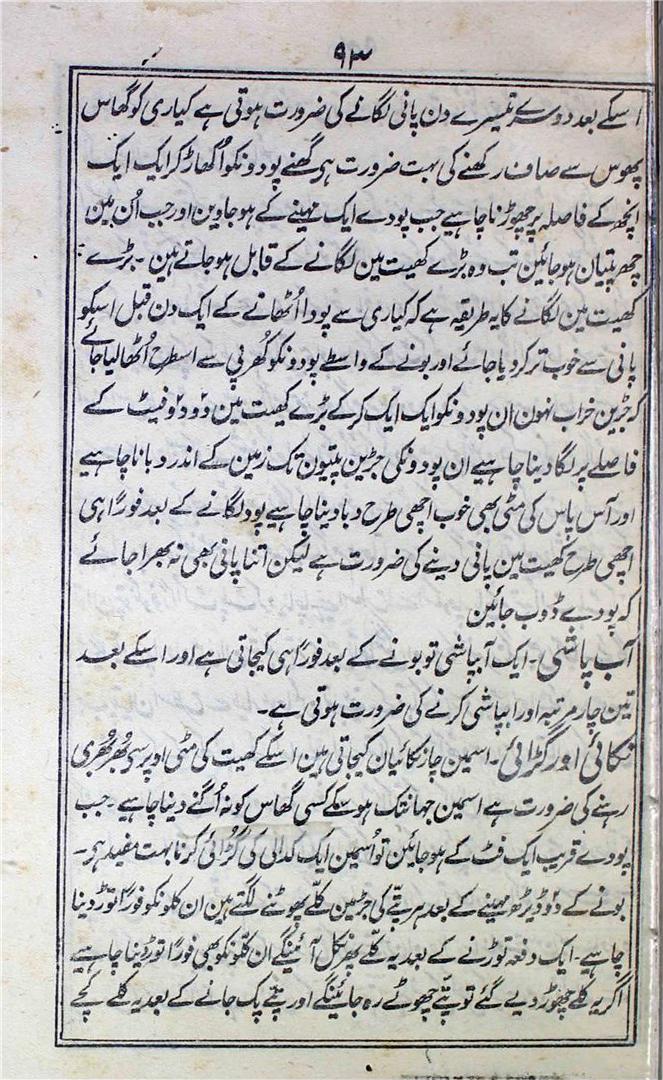 ۹۳
اسکے بعد دوسرے تیسرے دن پانی لگانے کی ضرورت ہوتی ہے کیاری کو گھاس
پھوس سے صاف رکھنے کی بہت ضرورت ہی گھنے پودونکو اُکھاڑ کر ایک ایک
انچھ کے فاصلہ پر چھوڑنا چاہیے جب پودے ایک مہینے کے ہو جاوین اور جب اُن مین
چھ پتیان ہو جائین تب وہ بڑے کھیت مین لگانے کے قابل ہو جاتے ہین ۔ بڑے
کھیت مین لگانے کا یہ طریقہ ہے کہ کیاری سے پودا اُٹھانے کے ایک دن قبل اسکو
پانی سے خوب تر کر دیا جائے اور بونے کے واسطے پودونکو کُھرپی سے اسطرح اُٹھا لیا جائے
کہ جڑین خراب نہون ان پودونکو ایک ایک کرکے بڑے کھیت مین دو دو فیٹ کے
فاصلے پر لگا دینا چاہیے ان پودونکی جڑین پتیون تک زمین کے اندر دبانا چاہیے
اور آس پاس کی مٹی بھی خوب اچھی طرح دبا دینا چاہیے پود لگانے کے بعد فوراً ہی
اچھی طرح کھیت مین پانی دینے کی ضرورت ہے لیکن اتنا پانی بھی نہ بھرا جائے
کہ پودے ڈوب جائین
آب پاشی ۔ ایک آبپاشی تو بونے کے بعد فوراً ہی کیجاتی ہے اور اسکے بعد
تین چار مرتبہ اور آبپاشی کرنے کی ضرورت ہوتی ہے ۔
نکائی اور گڑائی ۔ اسمین چار نکائیان کیجاتی ہین اسکے کھیت کی مٹی اوپر سی بُھربُھری
رہنے کی ضرورت ہے اسمین جہانتک ہو سکے کسی گھاس کو نہ اُگنے دینا چاہیے ۔ جب
پودے قریب ایک فٹ کے ہو جائین تو اُسمین ایک کدالی کی گڑائی کرنا بہت مفید ہی ۔
بونے کے دو ڈیڑھ مہینے کے بعد ہر پتے کی جڑمین کلّے پھوٹنے لگتے ہین ان کلونکو فوراً توڑ دینا
چاہیے ۔ ایک دفعہ توڑنے کے بعد یہ کلّے پھر نکل آئینگے ان کلّونکو بھی فوراً توڑ دینا چاہیے
اگر یہ کلّے چھوڑ دیے گئے تو پتّے چھوٹے رہ جائینگے اور پتّے پک جانے کے بعد یہ کلے کچے